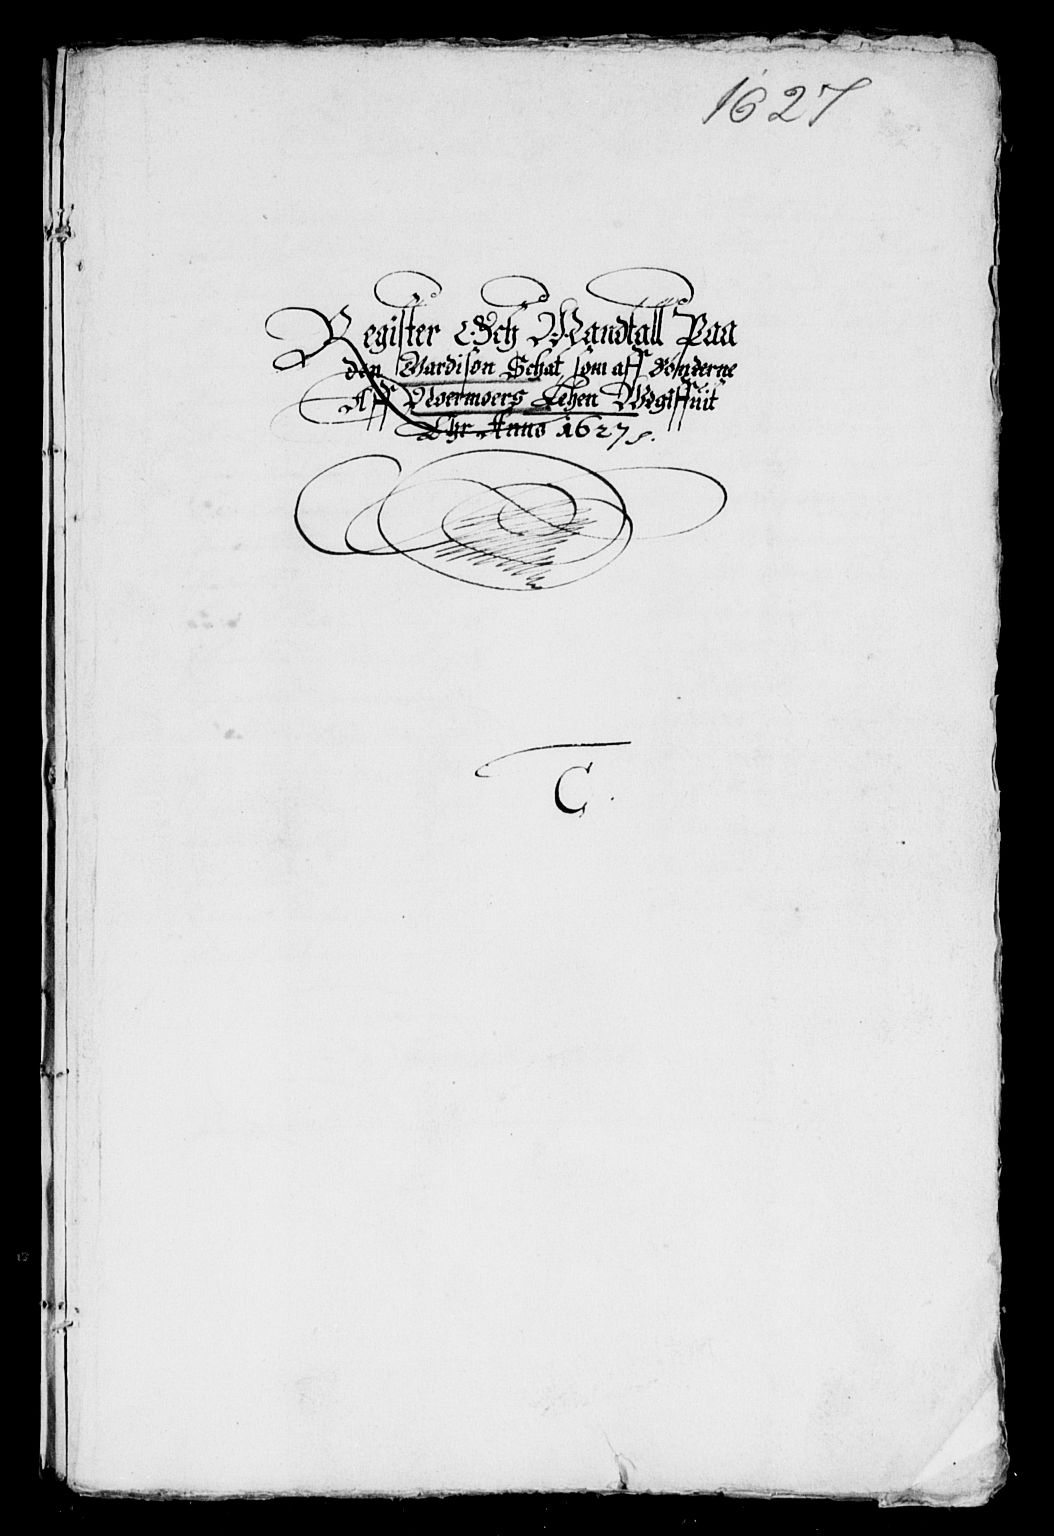 1627
Register Och Mandtall Paa
den Gardison Schat som aff Bønderne
Aff Noermøers Lehen Vdgiffuit
Ehr Anno 1627
C.